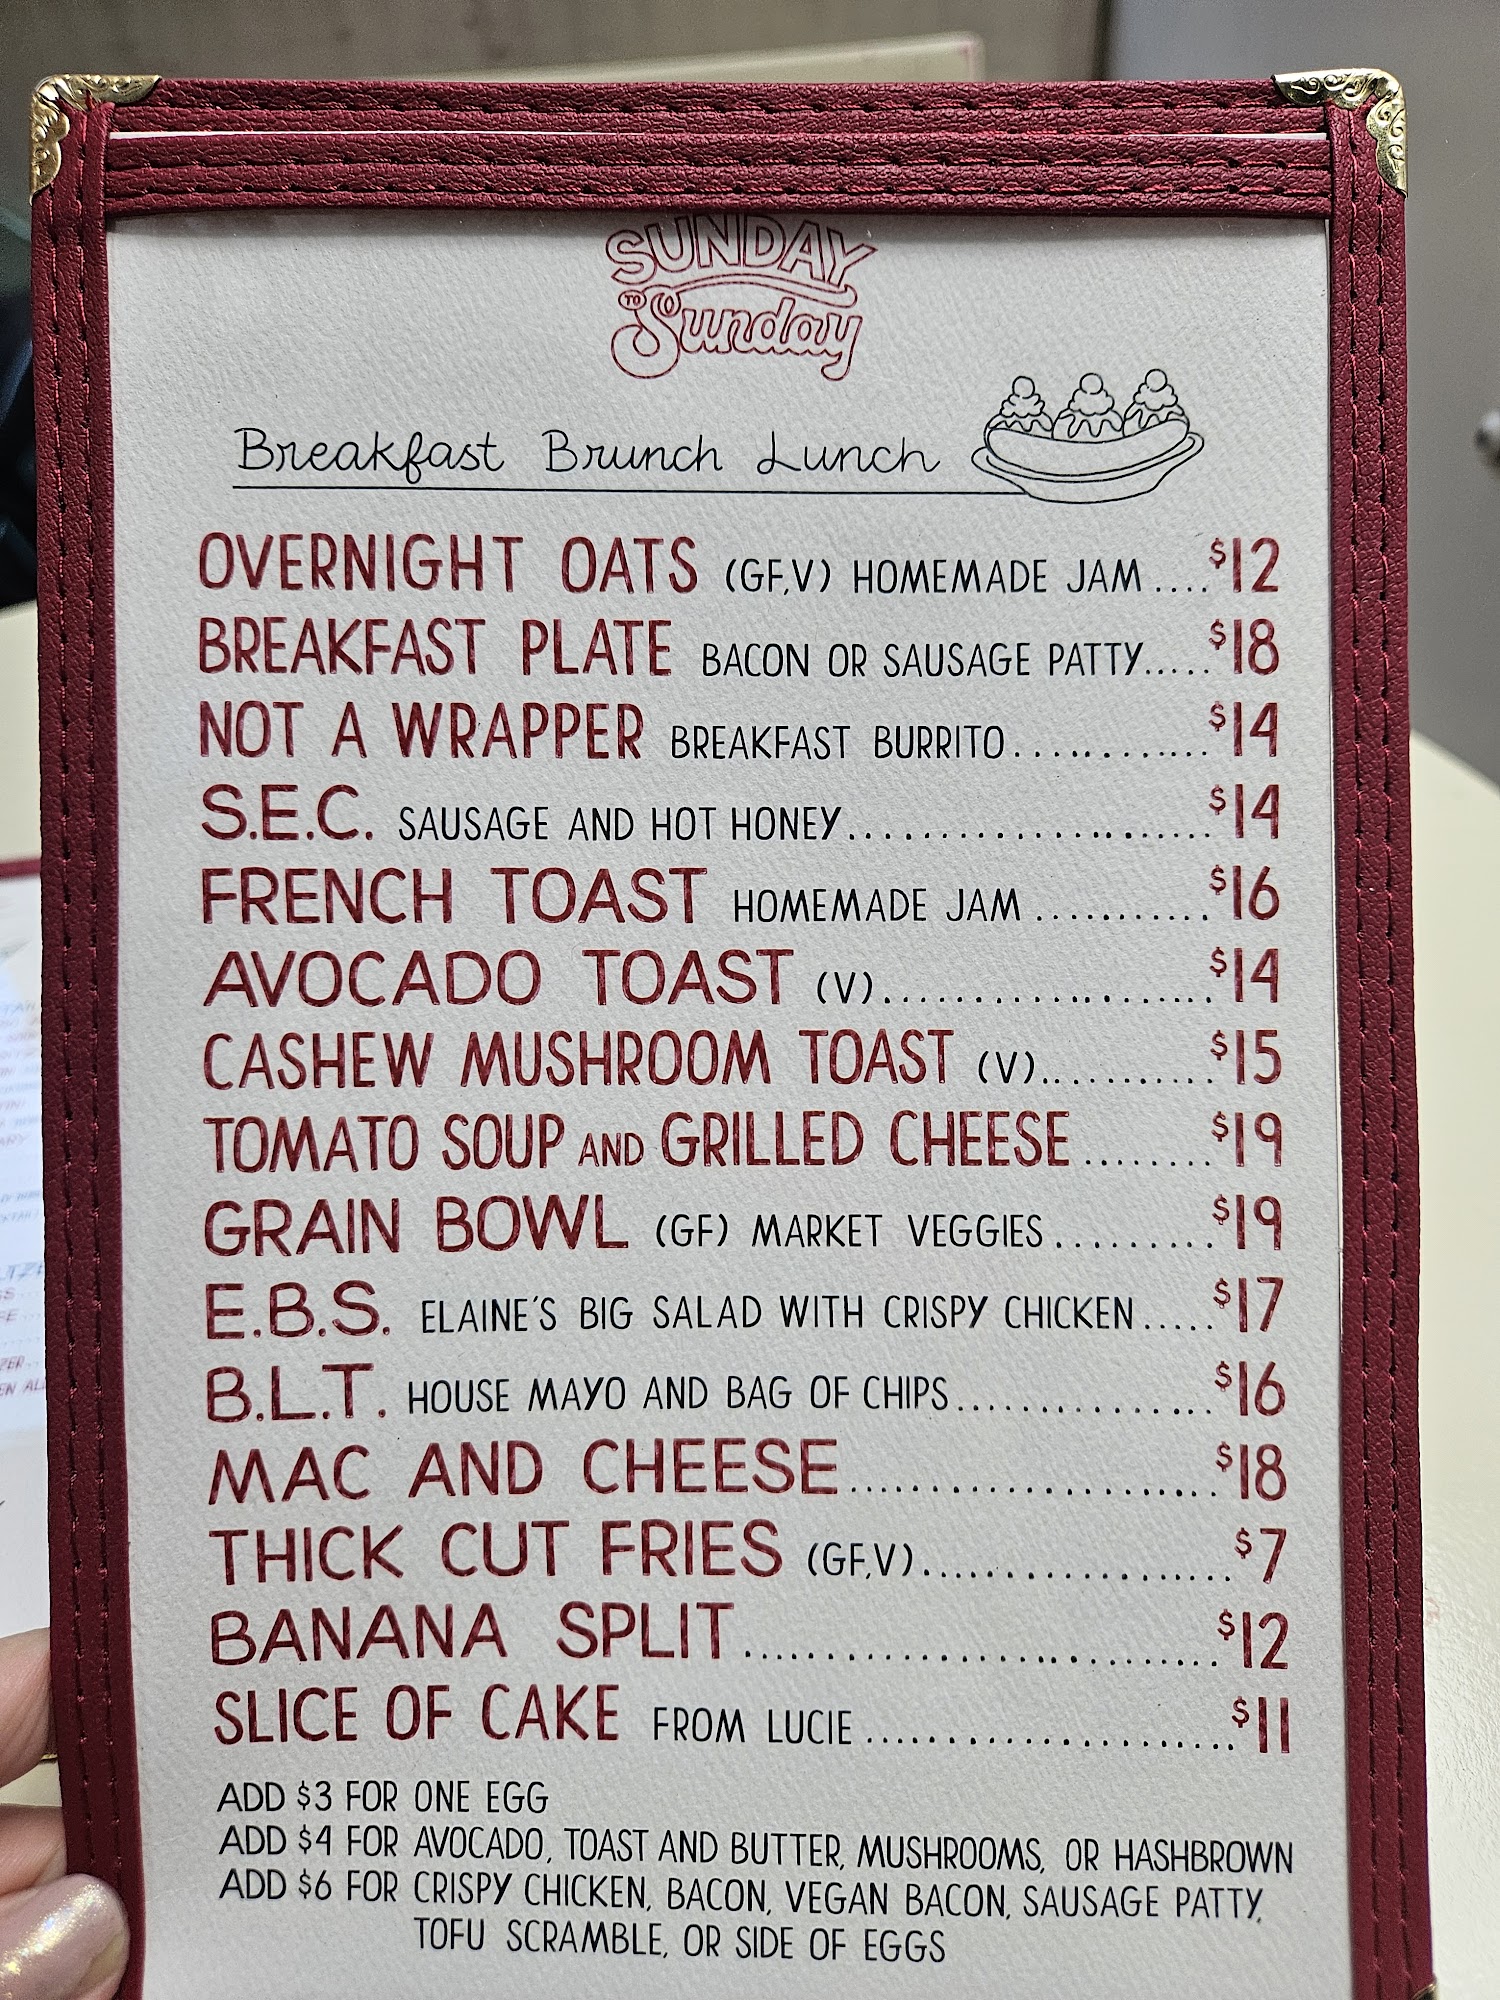 SUNDAY
TO
Sunday
Breakfast Brunch Lunch
OVERNIGHT OATS (GF,V) HOMEMADE JAM....$12
BREAKFAST PLATE BACON OR SAUSAGE PATTY.....$18
NOT A WRAPPER BREAKFAST BURRITO............$14
S.E.C. SAUSAGE AND HOT HONEY......................$14
FRENCH TOAST HOMEMADE JAM...........$16
AVOCADO TOAST (V)....................$14
CASHEW MUSHROOM TOAST (V)...........$15
TOMATO SOUP AND GRILLED CHEESE........$19
GRAIN BOWL (GF) MARKET VEGGIES.........$19
E.B.S. ELAINE'S BIG SALAD WITH CRISPY CHICKEN.....$17
B.L.T. HOUSE MAYO AND BAG OF CHIPS...............$16
MAC AND CHEESE......................$18
THICK CUT FRIES (GF,V)..................$7
BANANA SPLIT............................$12
SLICE OF CAKE FROM LUCIE......................$11
ADD $3 FOR ONE EGG
ADD $4 FOR AVOCADO, TOAST AND BUTTER, MUSHROOMS, OR HASHBROWN
ADD $6 FOR CRISPY CHICKEN, BACON, VEGAN BACON, SAUSAGE PATTY,
TOFU SCRAMBLE, OR SIDE OF EGGS